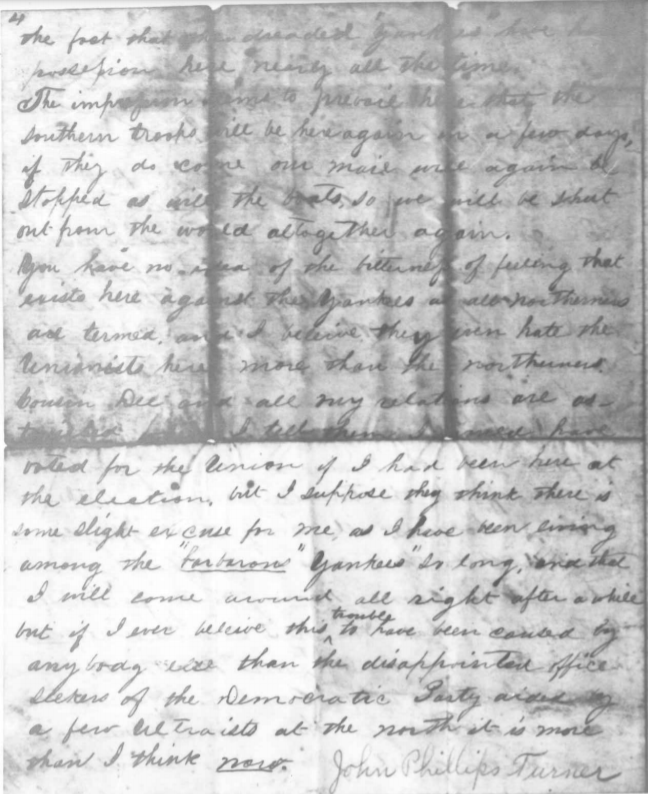 4
the fact that the dreaded "Yankees" have had
possession here nearly all the time.
The impression seems to prevail here that the
southern troops will be here again in a few days,
if they do come our mail will again be
stopped as will the boats, so we will be shut
out from the world altogether again.
You have no idea of the bitterness of feeling that
exists here against the Yankees as all northerners
are termed, and I beleive they even hate the
Unionists here more than the northerners
Cousin Dee and all my relations are as-
I tell them I would have
voted for the Union if I had been here at
the election, but I suppose they think there is
some slight excuse for me, as I have been living
among the "barbarous" Yankees" so long, and that
I will come around all right after a while
but if I ever beleive this trouble to have been caused by
anybody else than the disappointed office
seekers of the Democratic Party aided by
a few Ultraists at the north it is more
than I think now.
John Phillips Turner